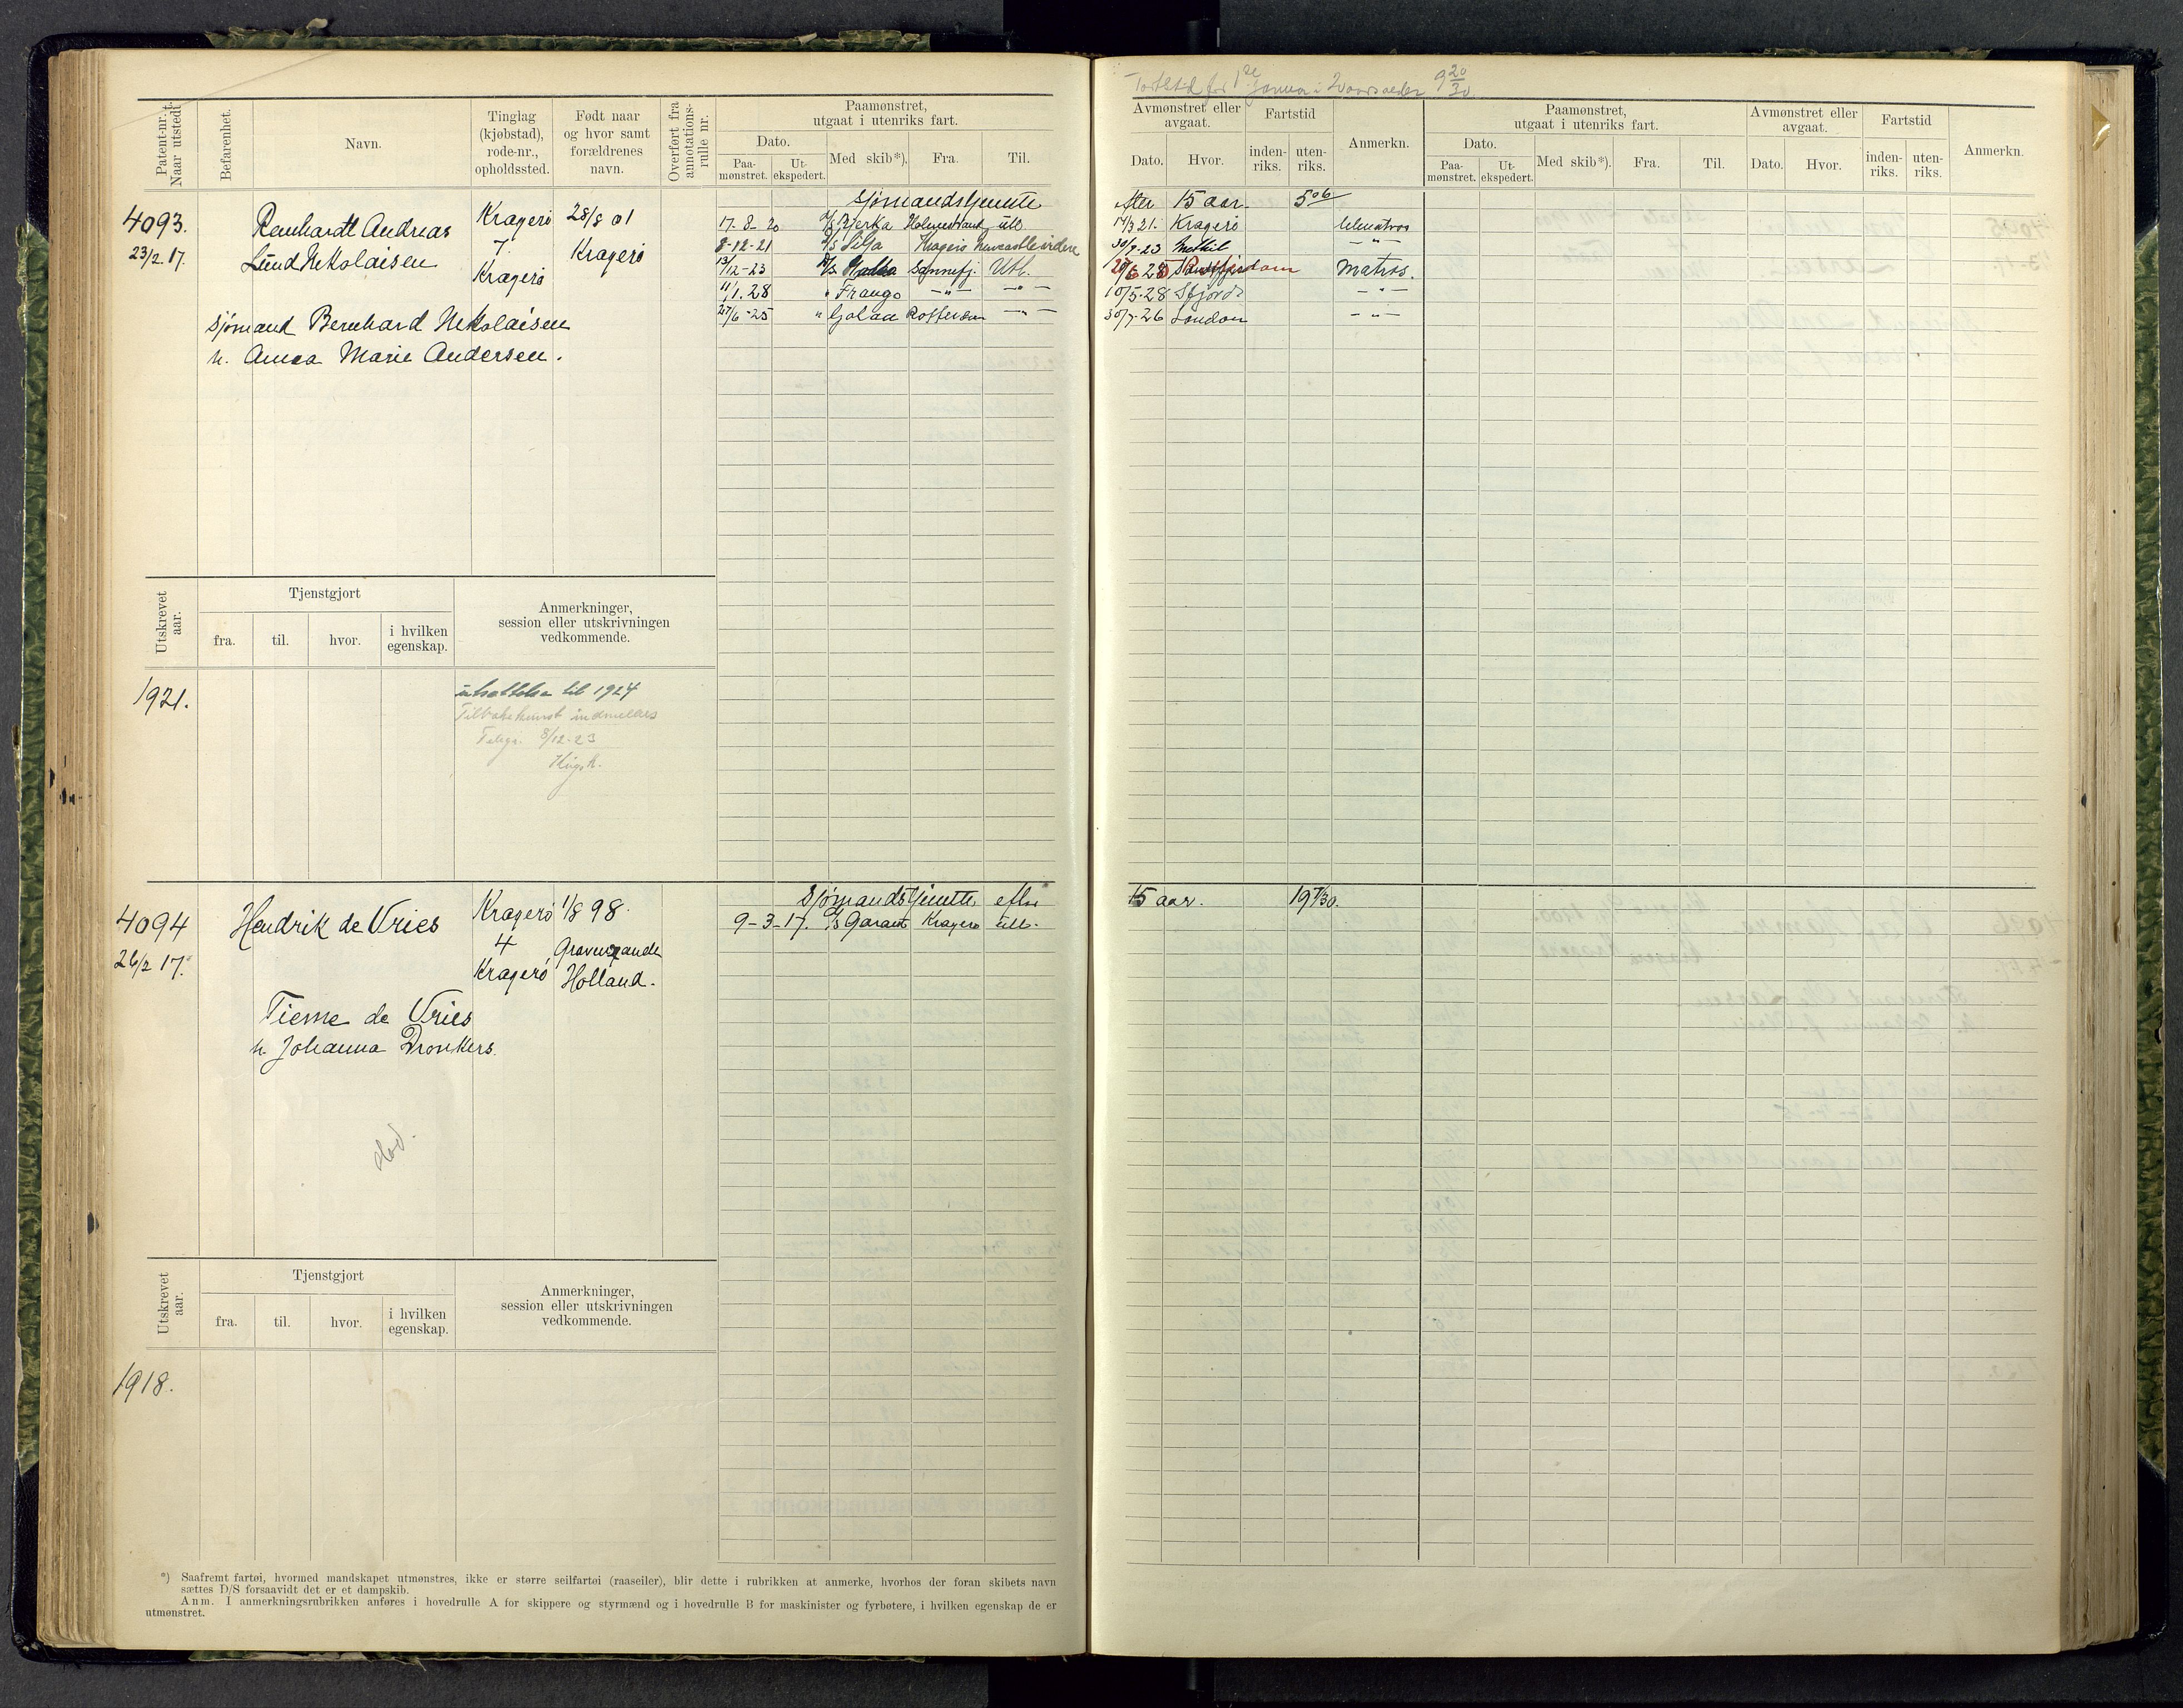 Fartstid for 1ste Januar i 20 aars alder 9 20/30
Patent-nr. Naar utstedt.
Befarenhet.
Navn.
Tinglag (kjøbstad), rode-nr., opholdssted.
Født naar og hvor samt forældrenes navn.
Overført fra annotations-rulle nr.
Paamønstret, utgaat i utenriks fart.
Dato.
Paa-mønstret.
Ut-ekspedert.
Med skib*).
Fra.
Til.
Avmønstret eller avgaat.
Dato.
Hvor.
Fartstid
inden-riks.
uten-riks.
Anmerkn.
Paamønstret, utgaat i utenriks fart.
Dato.
Paa-mønstret.
Ut-ekspedert.
Med skib*).
Fra.
Til.
Avmønstret eller avgaat.
Dato.
Hvor.
Fartstid
inden-riks.
uten-riks.
Anmerkn.
Sjømandstjeneste efter 15 aar. 5 06
4093. Reinhardt Andreas Kragerø 28/8 01
23/2 17. Lund Nikolaisen 7 Kragerø
Kragerø
17-8-20 Bjerka Holmestrand utl. 17/3 21. Kragerø letmatros
8-12-21 D/S Silja Kragerø Newcastle videre 30/7-23 Methil — " —
13/12-23 Sannefj. Utl. 28 Matros.
11/1.28 " Frango — " — — " — 10/5-28 Sfjord — " —
27/6-25 " Golaa Rotterdam — " — 30/7-26 London — " —
Sjømand Bernhard Nikolaisen
h. Anna Marie Andersen.
Utskrevet aar.
Tjenstgjort
fra.
til.
hvor.
i hvilken egenskap.
Anmerkninger, session eller utskrivningen vedkommende.
1921. utsættelse til 1924
Tilbakekomst indmeldes
Telegr. 8/12-23
4094 Hendrik de Vries Kragerø 1/8 98.
26/2 17. 4 Gravenzande
Kragerø Holland.
Sjømandstjeneste efter 15 aar. 19 7/30.
9-3-17. D/S Garant Kragerø utl.
Tieme de Vries
h. Johanna Dronkers.
død.
Utskrevet aar.
Tjenstgjort
fra.
til.
hvor.
i hvilken egenskap.
Anmerkninger, session eller utskrivningen vedkommende.
1918.
*) Saafremt fartøi, hvormed mandskapet utmønstres, ikke er større seilfartøi (raaseiler), blir dette i rubrikken at anmerke, hvorhos der foran skibets navn
sættes D/S forsaavidt det er et dampskib.
Anm. I anmerkningsrubrikken anføres i hovedrulle A for skippere og styrmænd og i hovedrulle B for maskinister og fyrbøtere, i hvilken egenskap de er
utmønstret.